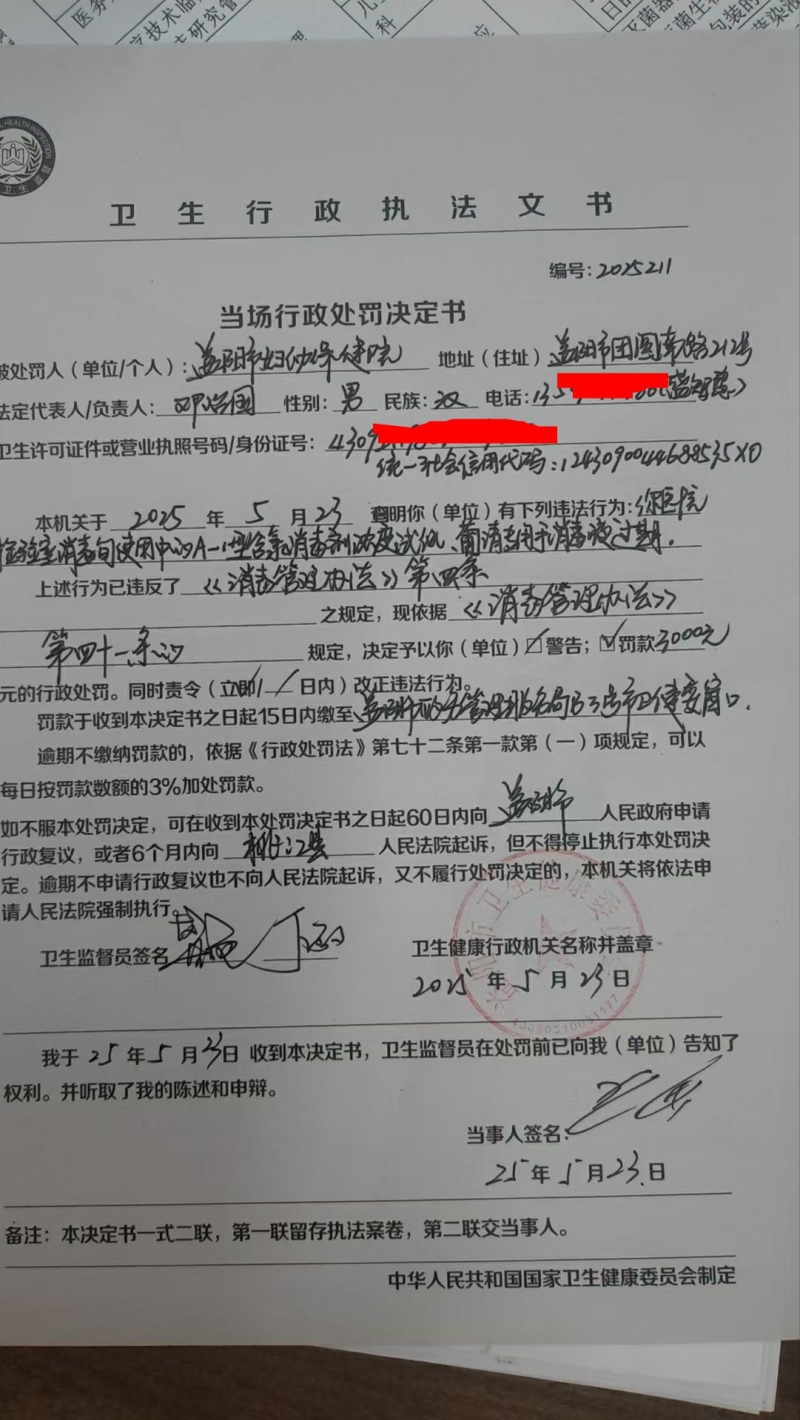 卫生行政执法文书
编号:2025211
当场行政处罚决定书
被处罚人(单位/个人):益阳市妇幼保健院 地址(住址)益阳市团圆南路212号
法定代表人/负责人: 性别:男 民族:汉 电话:135
卫生许可证件或营业执照号码/身份证号:4309
统一社会信用代码:1243090044688535X0
本机关于 2025 年 5 月 23 查明你(单位)有下列违法行为:你医院
检验室消毒旬使用中的A-1型含氯消毒剂浓度试纸、葡清专用手消毒液过期.
上述行为已违反了《消毒管理办法》第四条
之规定,现依据《消毒管理办法》
第四十一条的 规定,决定予以你(单位)☑警告;☑罚款3000元
元的行政处罚。同时责令(立即/ / 日内)改正违法行为。
罚款于收到本决定书之日起15日内缴至 益阳市政务管理服务局B3号市卫健委窗口.
逾期不缴纳罚款的,依据《行政处罚法》第七十二条第一款第(一)项规定,可以
每日按罚款数额的3%加处罚款。
如不服本处罚决定,可在收到本处罚决定书之日起60日内向 益阳市 人民政府申请
行政复议,或者6个月内向 桃江县 人民法院起诉,但不得停止执行本处罚决
定。逾期不申请行政复议也不向人民法院起诉,又不履行处罚决定的,本机关将依法申
请人民法院强制执行。
卫生监督员签名 卫生健康行政机关名称并盖章
2025 年 5 月 23 日
我于 25 年 5 月 23 日 收到本决定书,卫生监督员在处罚前已向我(单位)告知了
权利。并听取了我的陈述和申辩。
当事人签名:
25 年 5 月 23 日
备注:本决定书一式二联,第一联留存执法案卷,第二联交当事人。
中华人民共和国国家卫生健康委员会制定